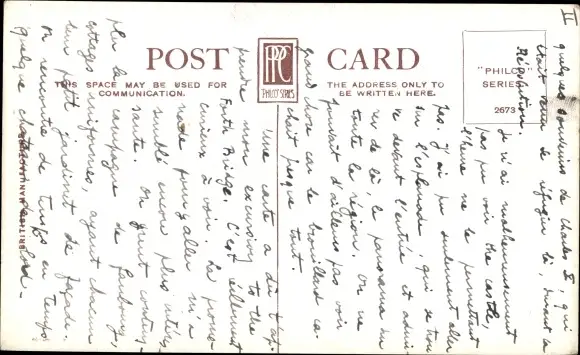 II
POST CARD
PPC
PHILCO SERIES
THIS SPACE MAY BE USED FOR
COMMUNICATION.
THE ADDRESS ONLY TO
BE WRITTEN HERE.
"PHILCO"
SERIES
2673
BRITISH MANUFACTURE
quelques souvenirs de Charles I, qui
était venu se réfugier là, durant la
Révolution.
Je n'ai malheureusement
pas pu voir the castle,
l'heure ne le permettant
pas. J'ai pu seulement aller
sur l'esplanade, qui se trou-
ve devant l'entrée et admi-
rer de là, le panorama sur
toute la région. On ne
pouvait d'ailleurs pas voir
grand chose car le brouillard ca-
chait presque tout.
Une carte a dû t'ap-
prendre mon excursion to the
Forth Bridge. C'est tellement
curieux à voir. La prome-
nade pour y aller m'a
semblé encore plus intéres-
sante. On peut contem-
pler la campagne de faubourg,
cottages uniformes, ayant chacun
leur petit jardinet de façade.
On rencontre de temps en temps
quelque château